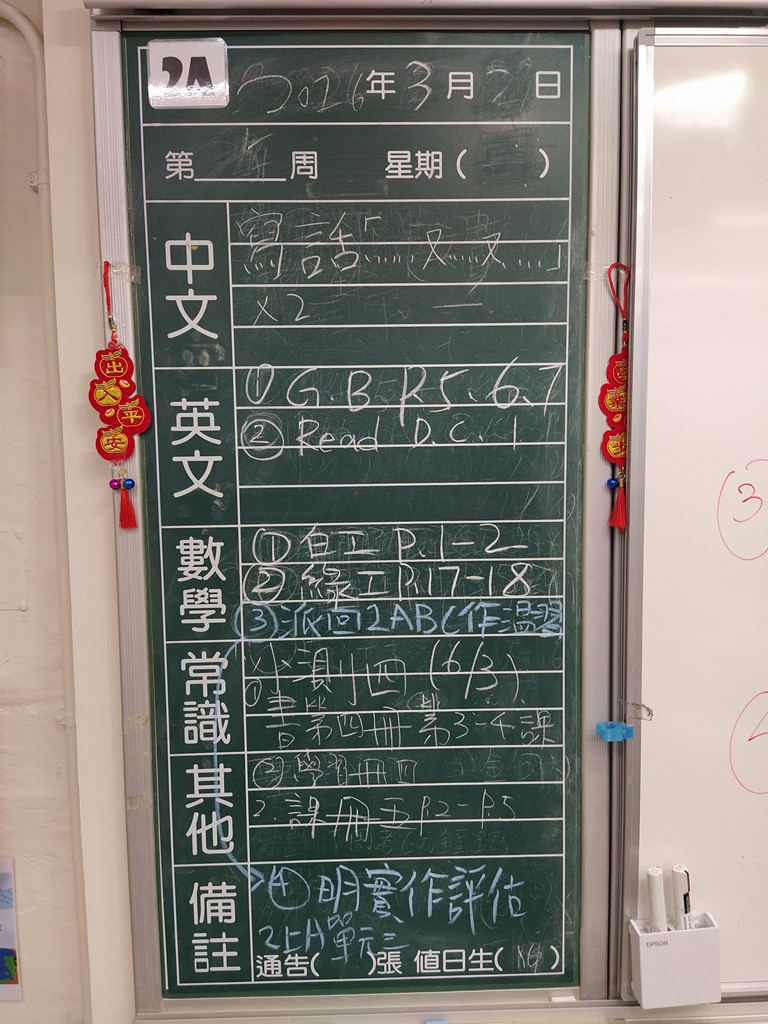 2A
2026年3月2日
第周 星期( )
中文
寫話「……又……又……」
x2
英文
① G.B. P.5, 6, 7
② Read D.C. 1
數學
① 白工 P.1-2
② 綠工 P.17-18
③ 派回2AB(作溫習
常識
小測四 (6/3)
① 書第四冊 第3-4課
其他
② 學習冊四
2. 課冊五 P.2-P.5
備註
④ 明實作評估
2上A單元三
通告( )張 值日生( )
出
入
平
安
EPSON
③